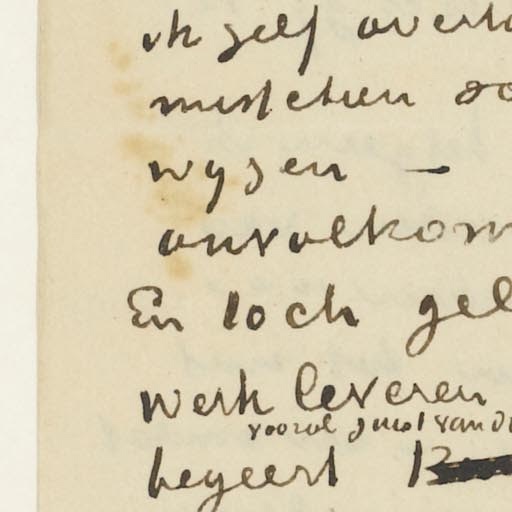 ik zelf overt
misschien do
wyzen —
onvolkom
En toch gel
werk leveren
vooral juist van d
begeert B